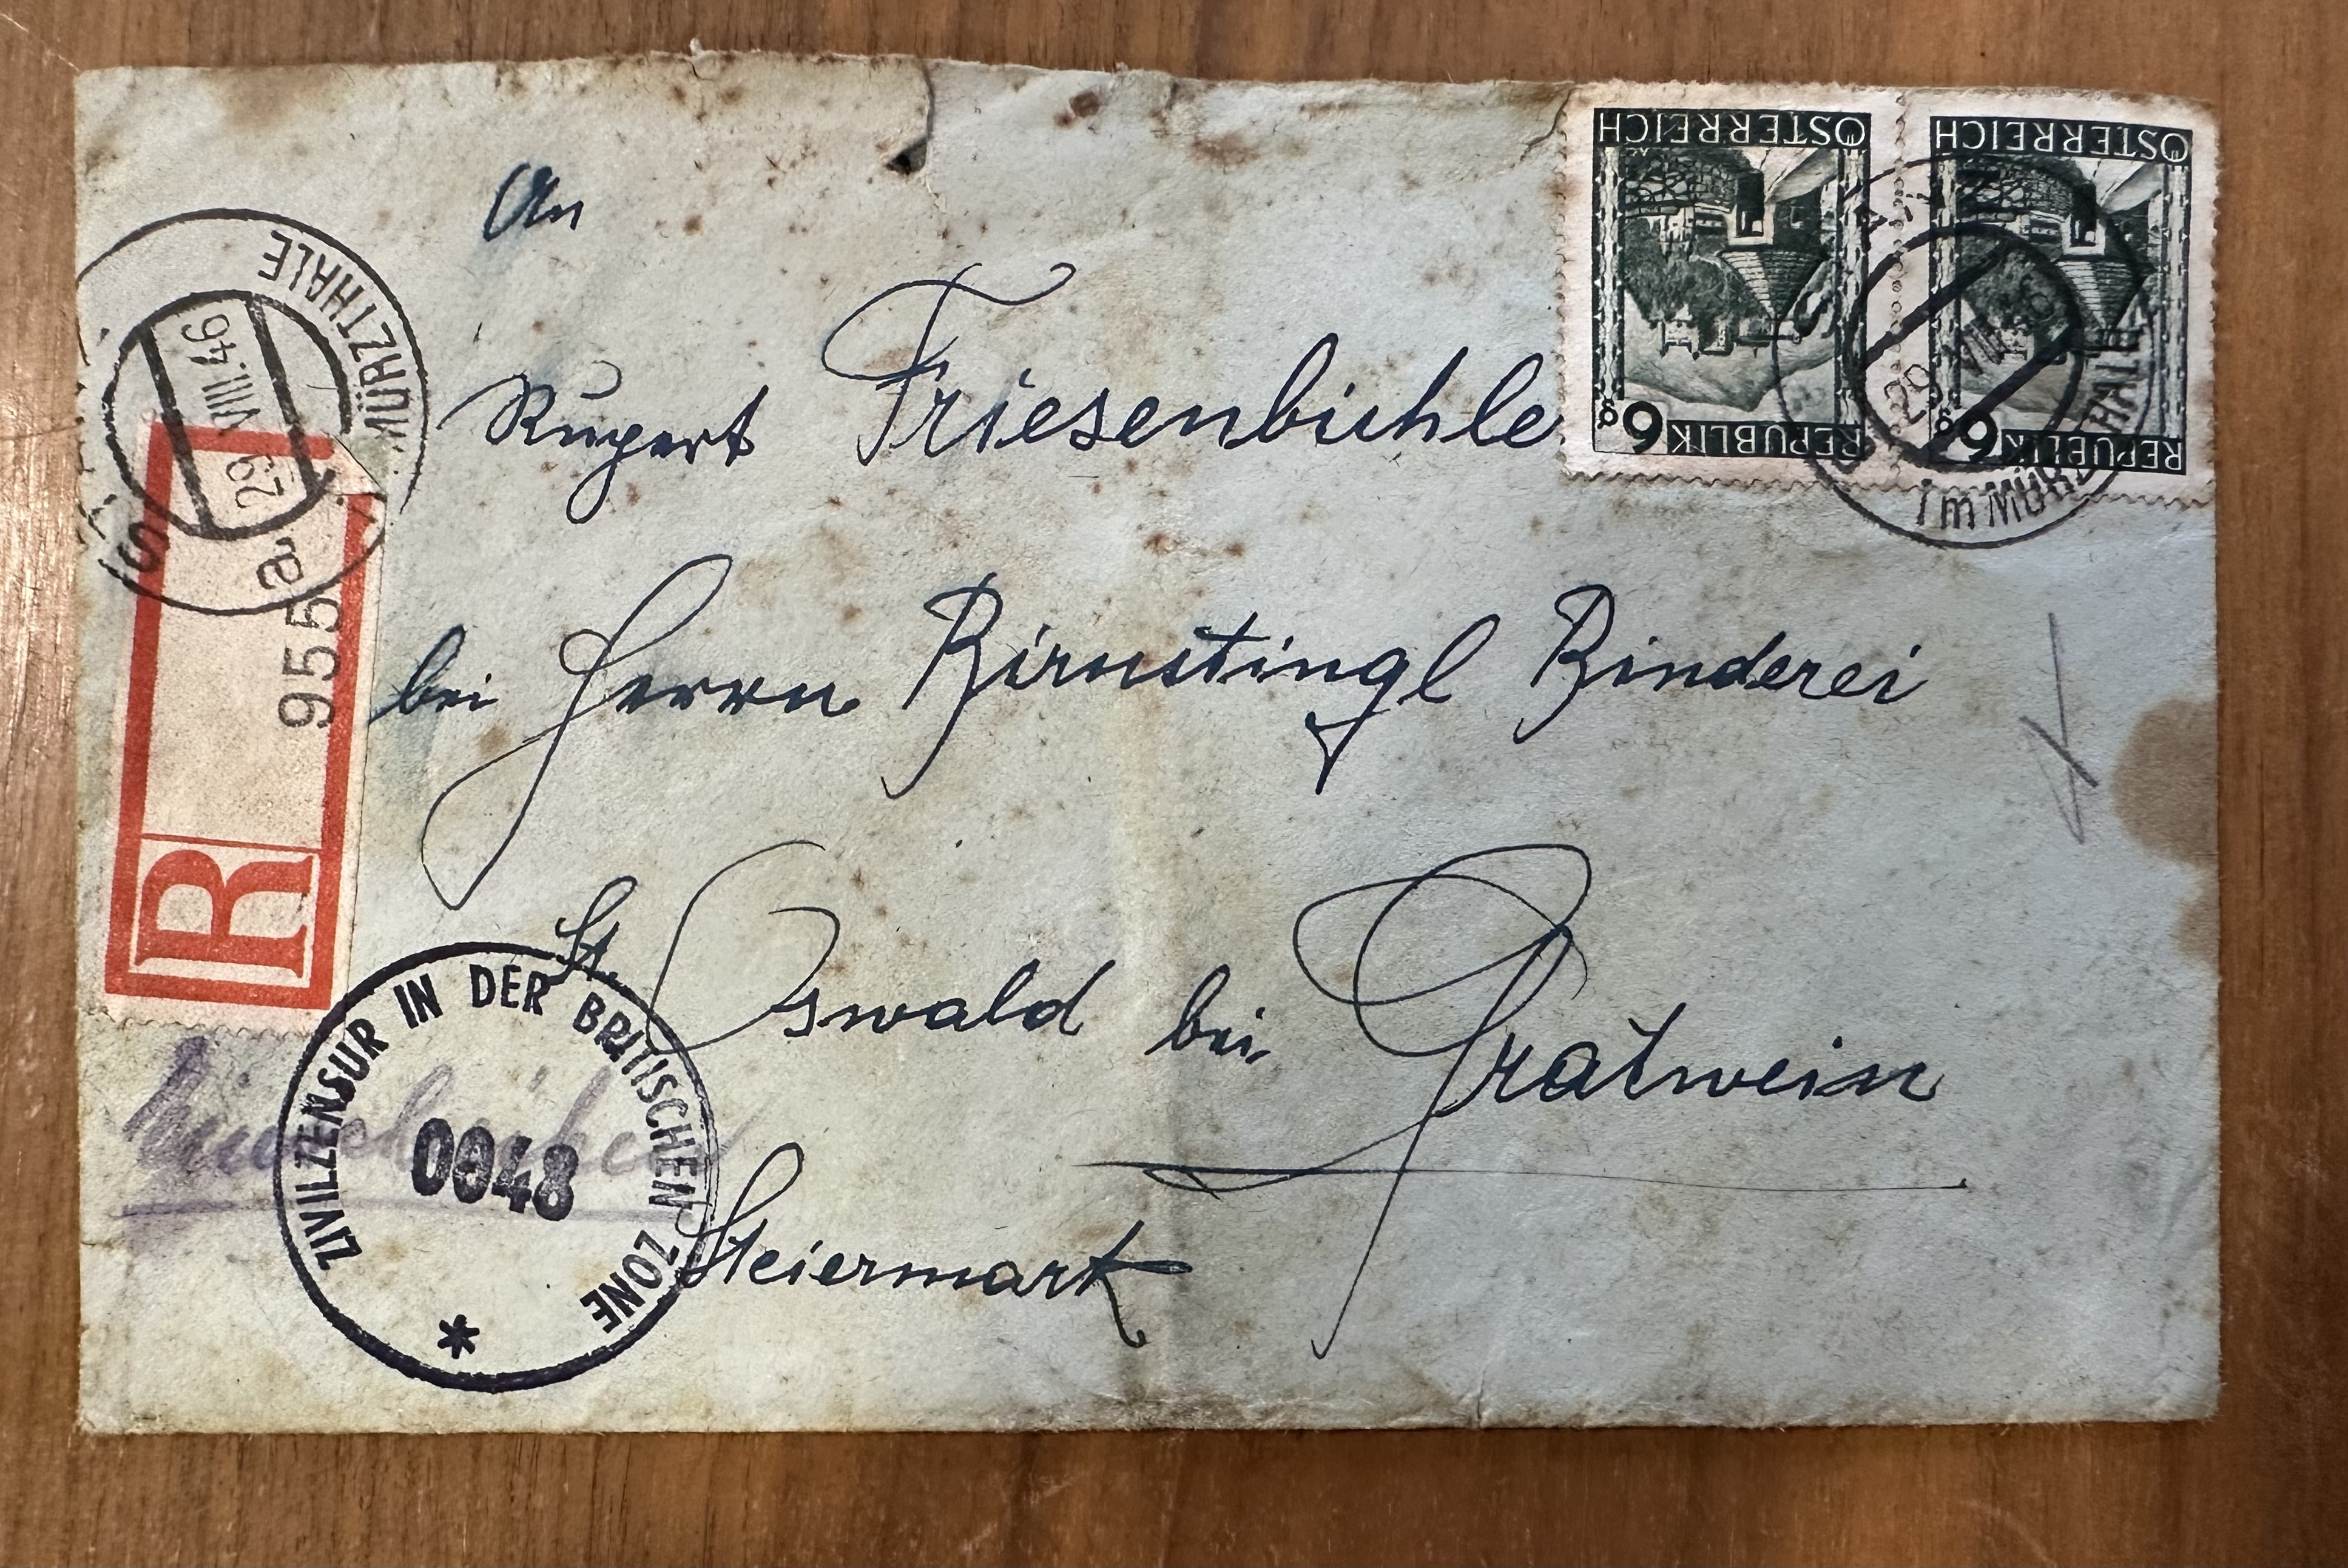 An
Rupert Friesenbichle
bei Herrn Birnstingl Binderei
St. Oswald bei Gratwein
Steiermark
ÖSTERREICH
6g
REPUBLIK
ÖSTERREICH
6g
REPUBLIK
29 VIII.46
im MÜRZTHALE
MÜRZTHALE
29 VIII.46
a
R
955
ZIVILZENSUR IN DER BRITISCHEN ZONE
0048
*